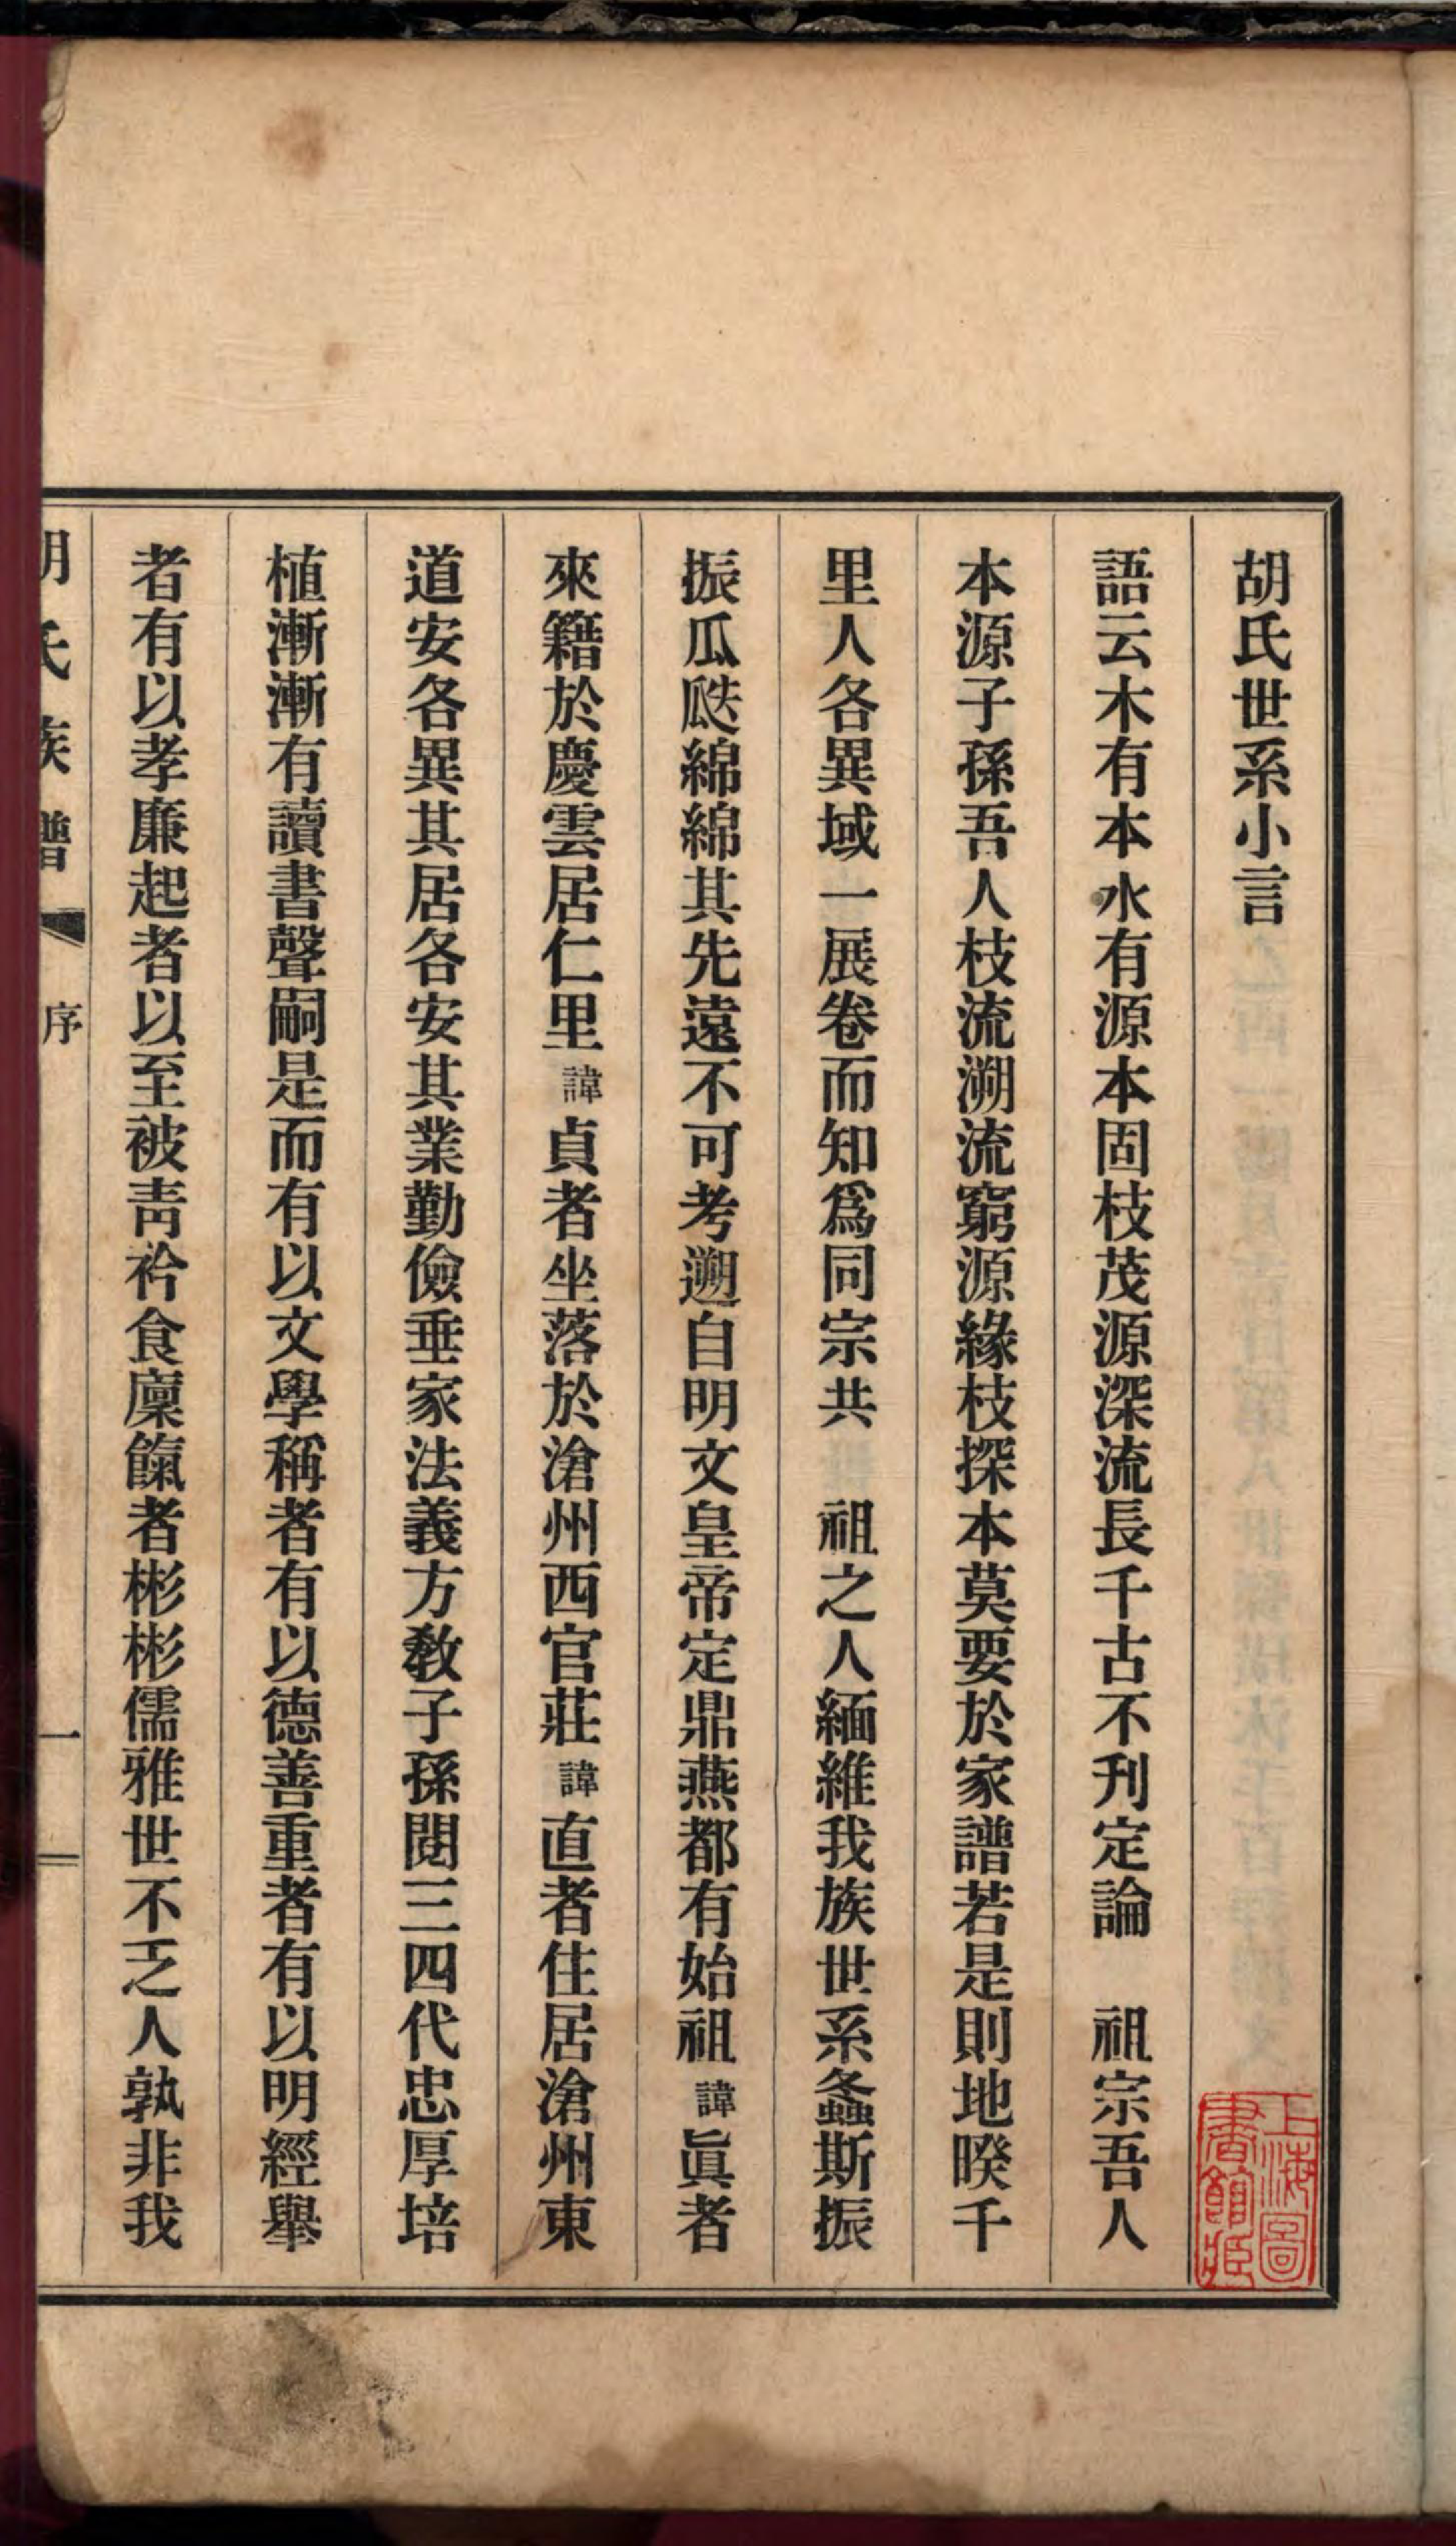 胡氏世系小言
語云木有本水有源本固枝茂源深流長千古不刊定論　祖宗吾人
本源子孫吾人枝流溯流窮源緣枝探本莫要於家譜若是則地暌千
里人各異域一展卷而知爲同宗共　祖之人緬維我族世系螽斯振
振瓜瓞綿綿其先遠不可考遡自明文皇帝定鼎燕都有始祖諱眞者
來籍於慶雲居仁里諱貞者坐落於滄州西官莊諱直者住居滄州東
道安各異其居各安其業勤儉垂家法義方敎子孫閱三四代忠厚培
植漸漸有讀書聲嗣是而有以文學稱者有以德善重者有以明經舉
者有以孝廉起者以至被靑衿食廩餼者彬彬儒雅世不乏人孰非我
胡氏族譜　序　一
上海圖書館藏